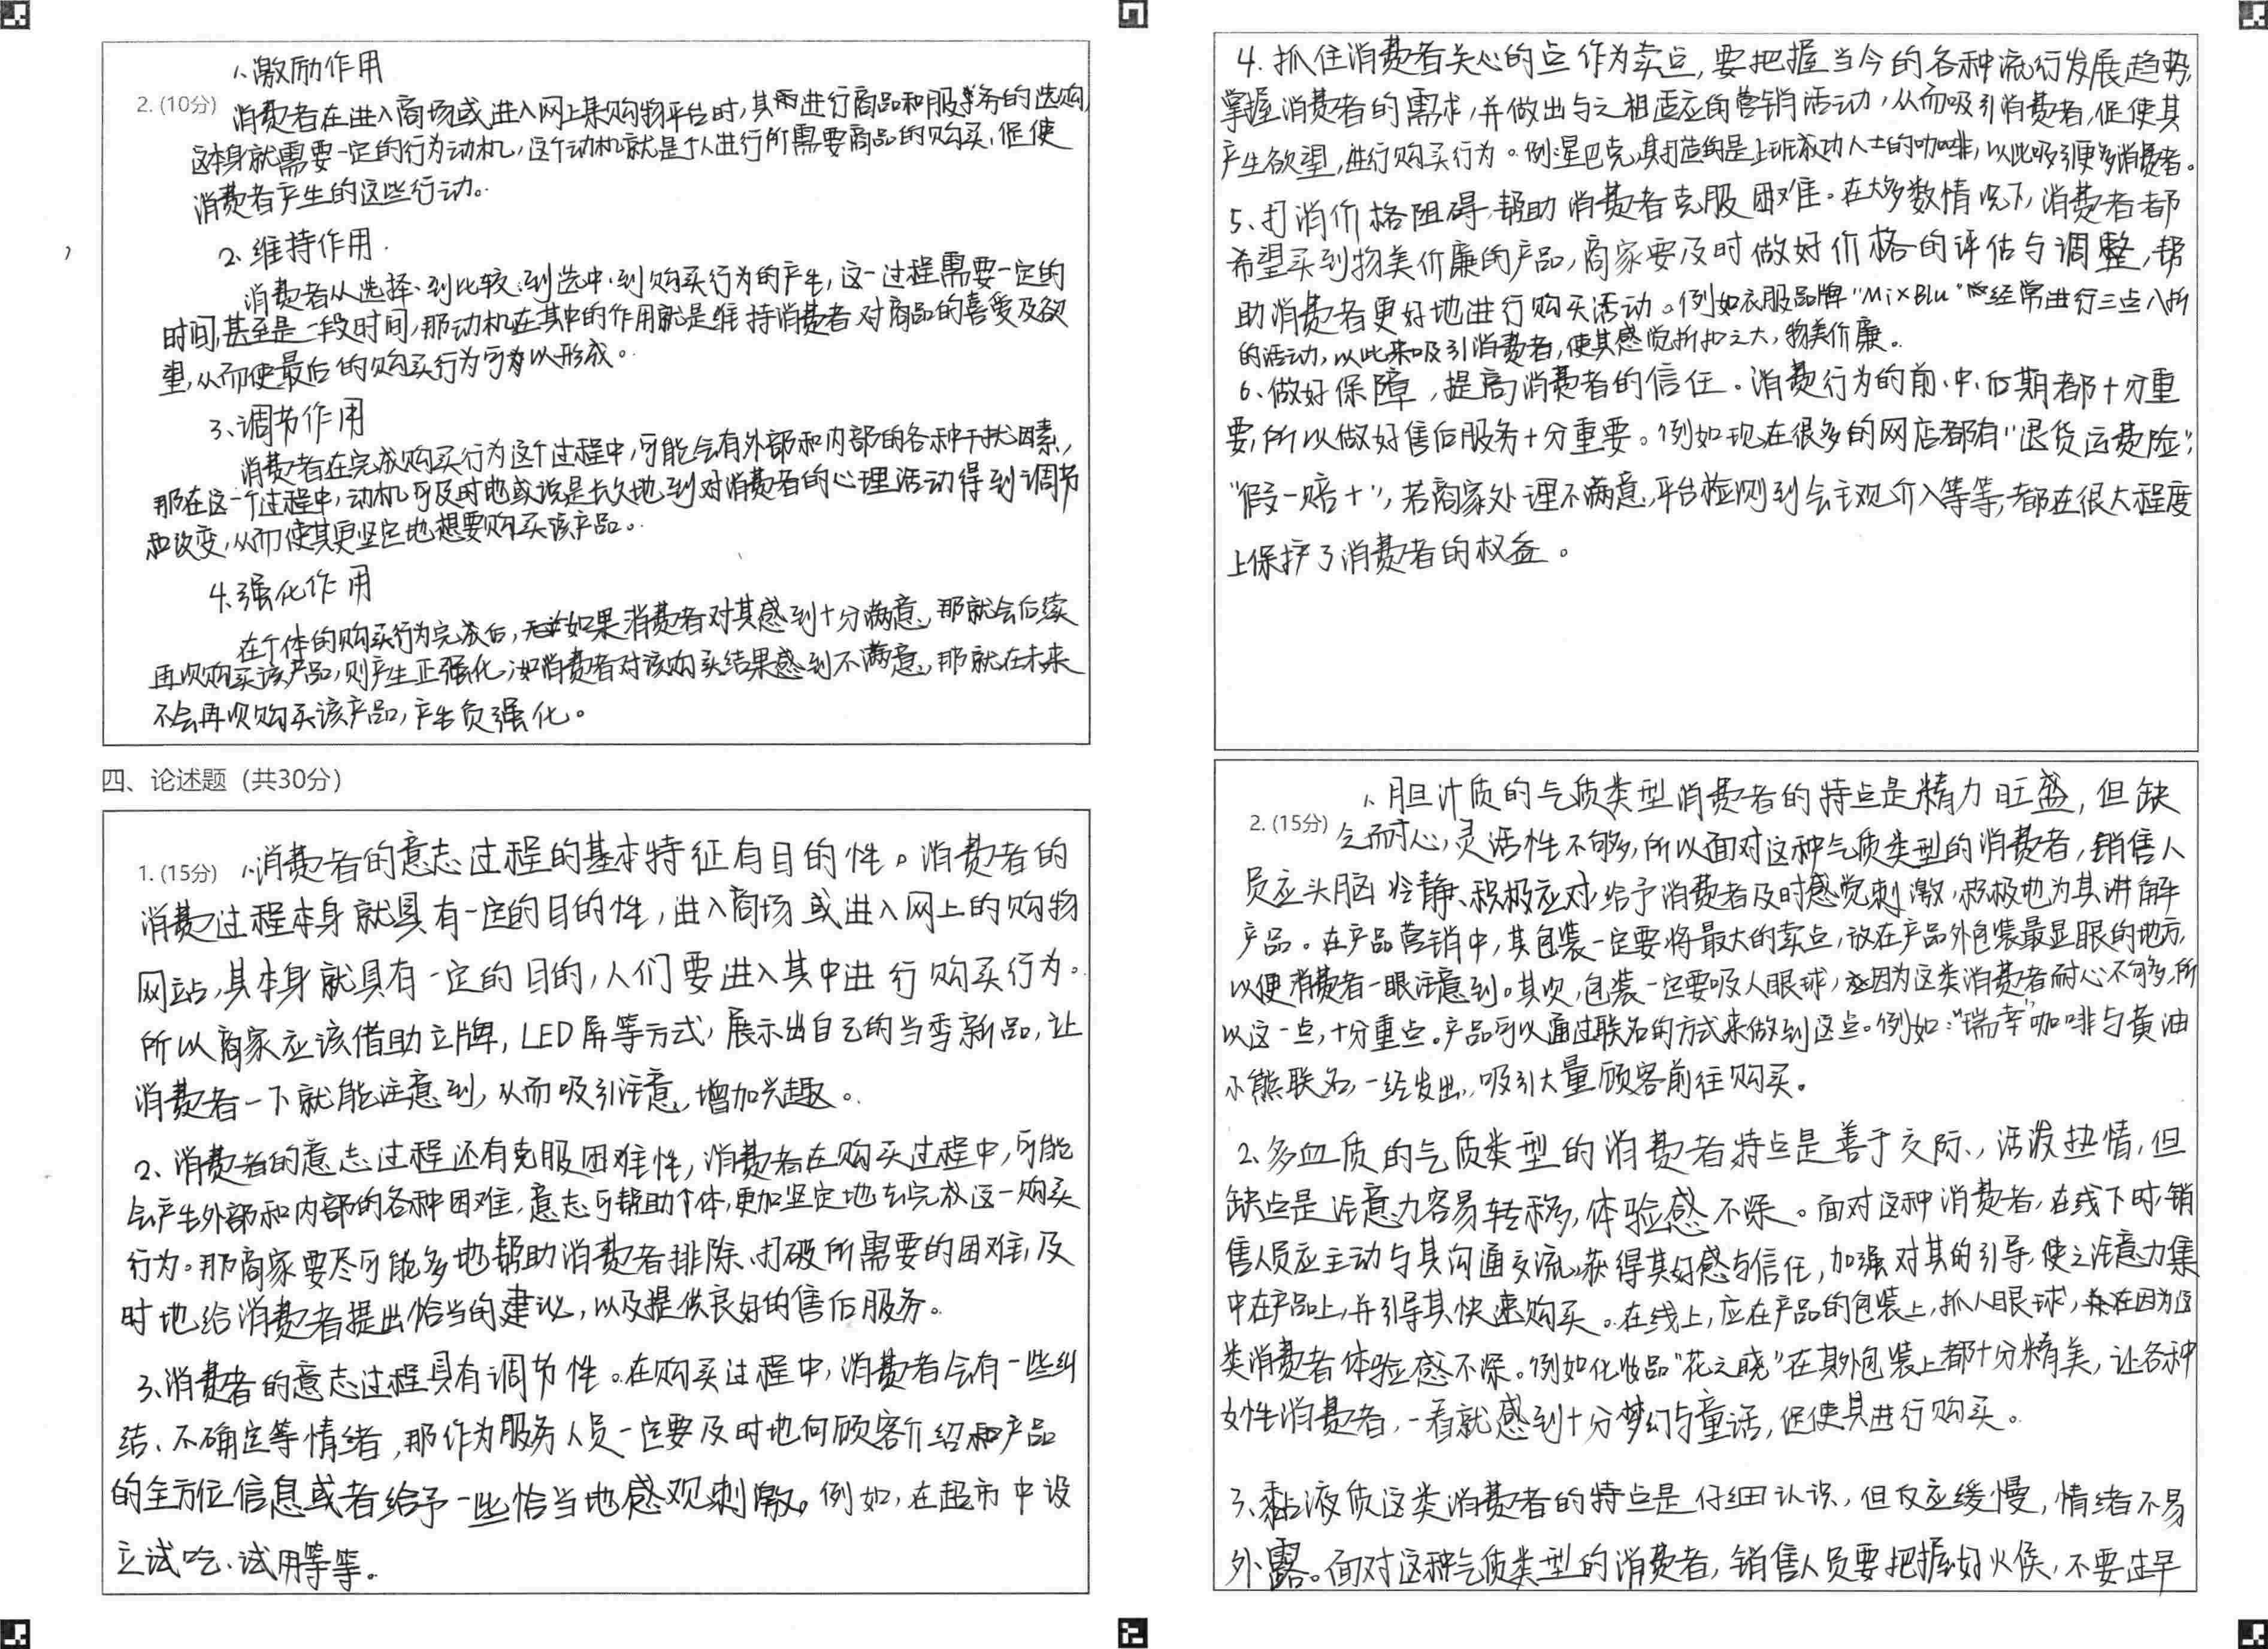 1、激励作用
2. (10分) 消费者在进入商场或进入网上购物平台时,其进行商品和服务的选购,
这本身就需要一定的行为动机,这个动机就是个人进行所需要商品的购买,促使
消费者产生的这些行动。
2、维持作用.
消费者从选择、到比较、到选中、到购买行为的产生,这一过程需要一定的
时间,甚至是一段时间,那动机在其中的作用就是维持消费者对商品的喜爱及欲
望,从而使最后的购买行为可以形成。
3、调节作用
消费者在完成购买行为这个过程中,可能会有外部和内部的各种干扰因素,
那在这一个过程中,动机可及时地或说是长久地到对消费者的心理活动得到调节
和改变,从而使其更坚定地想要购买该产品。
4、强化作用
在个体的购买行为完成后,如果消费者对其感到十分满意,那就会后续
再次购买该产品,则产生正强化,如消费者对该购买结果感到不满意,那就在未来
不会再次购买该产品,产生负强化。
四、论述题（共30分）
1. (15分) 1、消费者的意志过程的基本特征有目的性。消费者的
消费过程本身就具有一定的目的性,进入商场或进入网上的购物
网站,其本身就具有一定的目的,人们要进入其中进行购买行为。
所以商家应该借助立牌,LED屏等方式,展示出自己的当季新品,让
消费者一下就能注意到,从而吸引注意,增加兴趣。
2、消费者的意志过程还有克服困难性,消费者在购买过程中,可能
会产生外部和内部的各种困难,意志可帮助个体,更加坚定地去完成这一购买
行为。那商家要尽可能多地帮助消费者排除、打破所需要的困难,及
时地给消费者提出恰当的建议,以及提供良好的售后服务。
3、消费者的意志过程具有调节性。在购买过程中,消费者会有一些纠
结、不确定等情绪,那作为服务人员一定要及时地向顾客介绍产品
的全方位信息或者给予一些恰当地感观刺激。例如,在超市中设
立试吃、试用等等。
4. 抓住消费者关心的点作为卖点,要把握当今的各种流行发展趋势,
掌握消费者的需求,并做出与之相适应的营销活动,从而吸引消费者,促使其
产生欲望,进行购买行为。例:星巴克,其打造的是上班成功人士的咖啡,以此吸引更多消费者。
5、打消价格阻碍,帮助消费者克服困难。在大多数情况下,消费者都
希望买到物美价廉的产品,商家要及时做好价格的评估与调整,帮
助消费者更好地进行购买活动。例如衣服品牌"MixBlu"经常进行三点八折
的活动,以此来吸引消费者,使其感觉折扣之大,物美价廉。
6、做好保障,提高消费者的信任。消费行为的前、中、后期都十分重
要,所以做好售后服务十分重要。例如现在很多的网店都有"退货运费险",
"假一赔十",若商家处理不满意,平台检测到会主观介入等等,都在很大程度
上保护了消费者的权益。
1、胆汁质的气质类型消费者的特点是精力旺盛,但缺
2. (15分) 乏耐心,灵活性不够,所以面对这种气质类型的消费者,销售人
员应头脑冷静、积极应对,给予消费者及时感觉刺激,积极地为其讲解
产品。在产品营销中,其包装一定要将最大的卖点,放在产品外包装最显眼的地方,
以便消费者一眼注意到。其次,包装一定要吸人眼球,因为这类消费者耐心不够,所
以这一点,十分重点。产品可以通过联名的方式来做到这点。例如:"瑞幸"咖啡与黄油
小熊联名,一经发出,吸引大量顾客前往购买。
2、多血质的气质类型的消费者特点是善于交际,活泼热情,但
缺点是注意力容易转移,体验感不深。面对这种消费者,在线下时,销
售人员应主动与其沟通交流,获得其好感与信任,加强对其的引导,使之注意力集
中在产品上,并引导其快速购买。在线上,应在产品的包装上,抓人眼球,因为这
类消费者体验感不深。例如化妆品"花之晓"在其外包装上都十分精美,让各种
女性消费者,一看就感到十分梦幻与童话,促使其进行购买。
3、黏液质这类消费者的特点是仔细认识,但反应缓慢,情绪不易
外露。面对这种气质类型的消费者,销售人员要把握好火候,不要过早